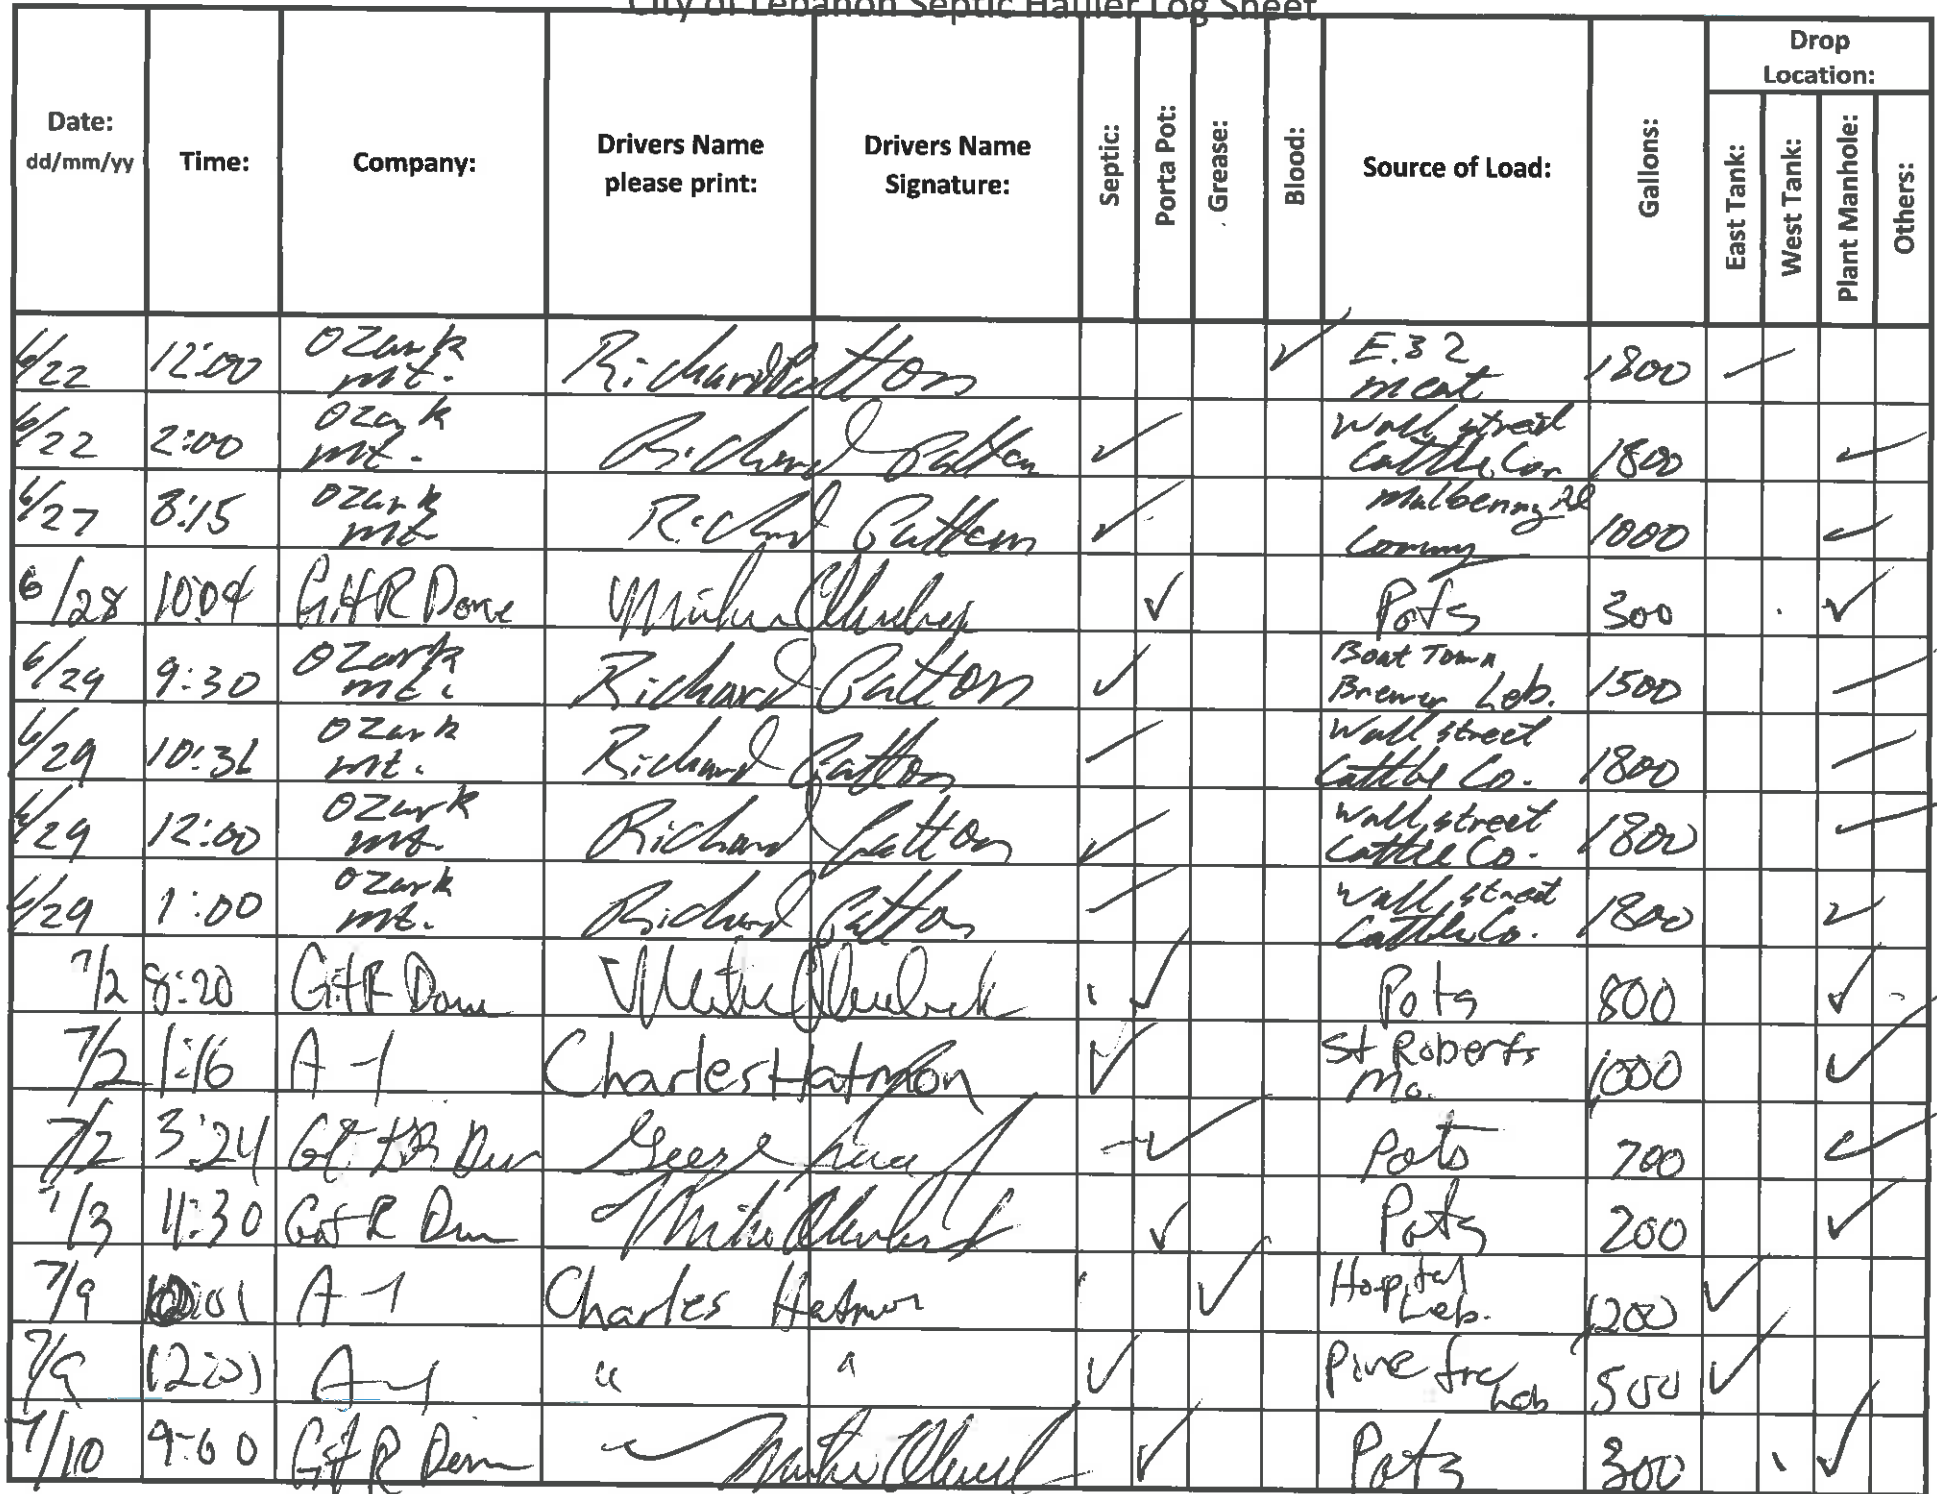 City of Lebanon Septic Hauler Log Sheet
Drop
Location:
Date:
dd/mm/yy
Time:
Company:
Drivers Name
please print:
Drivers Name
Signature:
Septic:
Porta Pot:
Grease:
Blood:
Source of Load:
Gallons:
East Tank:
West Tank:
Plant Manhole:
Others:
6/22 12:00 Ozark mt. Richard Patton ✓ E.32 meat 1800 ✓
6/22 2:00 Ozark mt. Richard Patton ✓ Wall street Cattle Co. 1800 ✓
6/27 8:15 Ozark mt. Richard Patton ✓ Mulberry 1000 ✓
6/28 10:04 Git R Done ✓ Pots 300 ✓
6/29 9:30 Ozark mt. Richard Patton ✓ Boat Town Brewer Leb. 1500 ✓
6/29 10:31 Ozark mt. Richard Patton ✓ Wall street Cattle Co. 1800 ✓
6/29 12:00 Ozark mt. Richard Patton ✓ Wall street Cattle Co. 1800 ✓
6/29 1:00 Ozark mt. Richard Patton ✓ Wall street Cattle Co. 1800 ✓
7/2 8:20 Git R Done ✓ Pots 800 ✓
7/2 1:16 A-1 Charles Hatmon ✓ St Roberts Mo. 1000 ✓
7/2 3:24 Git R Dun ✓ Pots 700 ✓
7/3 11:30 Git R Dun Mike ✓ Pots 200 ✓
7/9 A-1 Charles Hatmon ✓ Hospital Leb. 1200 ✓
7/9 12:01 A-1 " " ✓ Pine Leb 500 ✓
7/10 9:00 Git R Dun Mike ✓ Pots 300 ✓